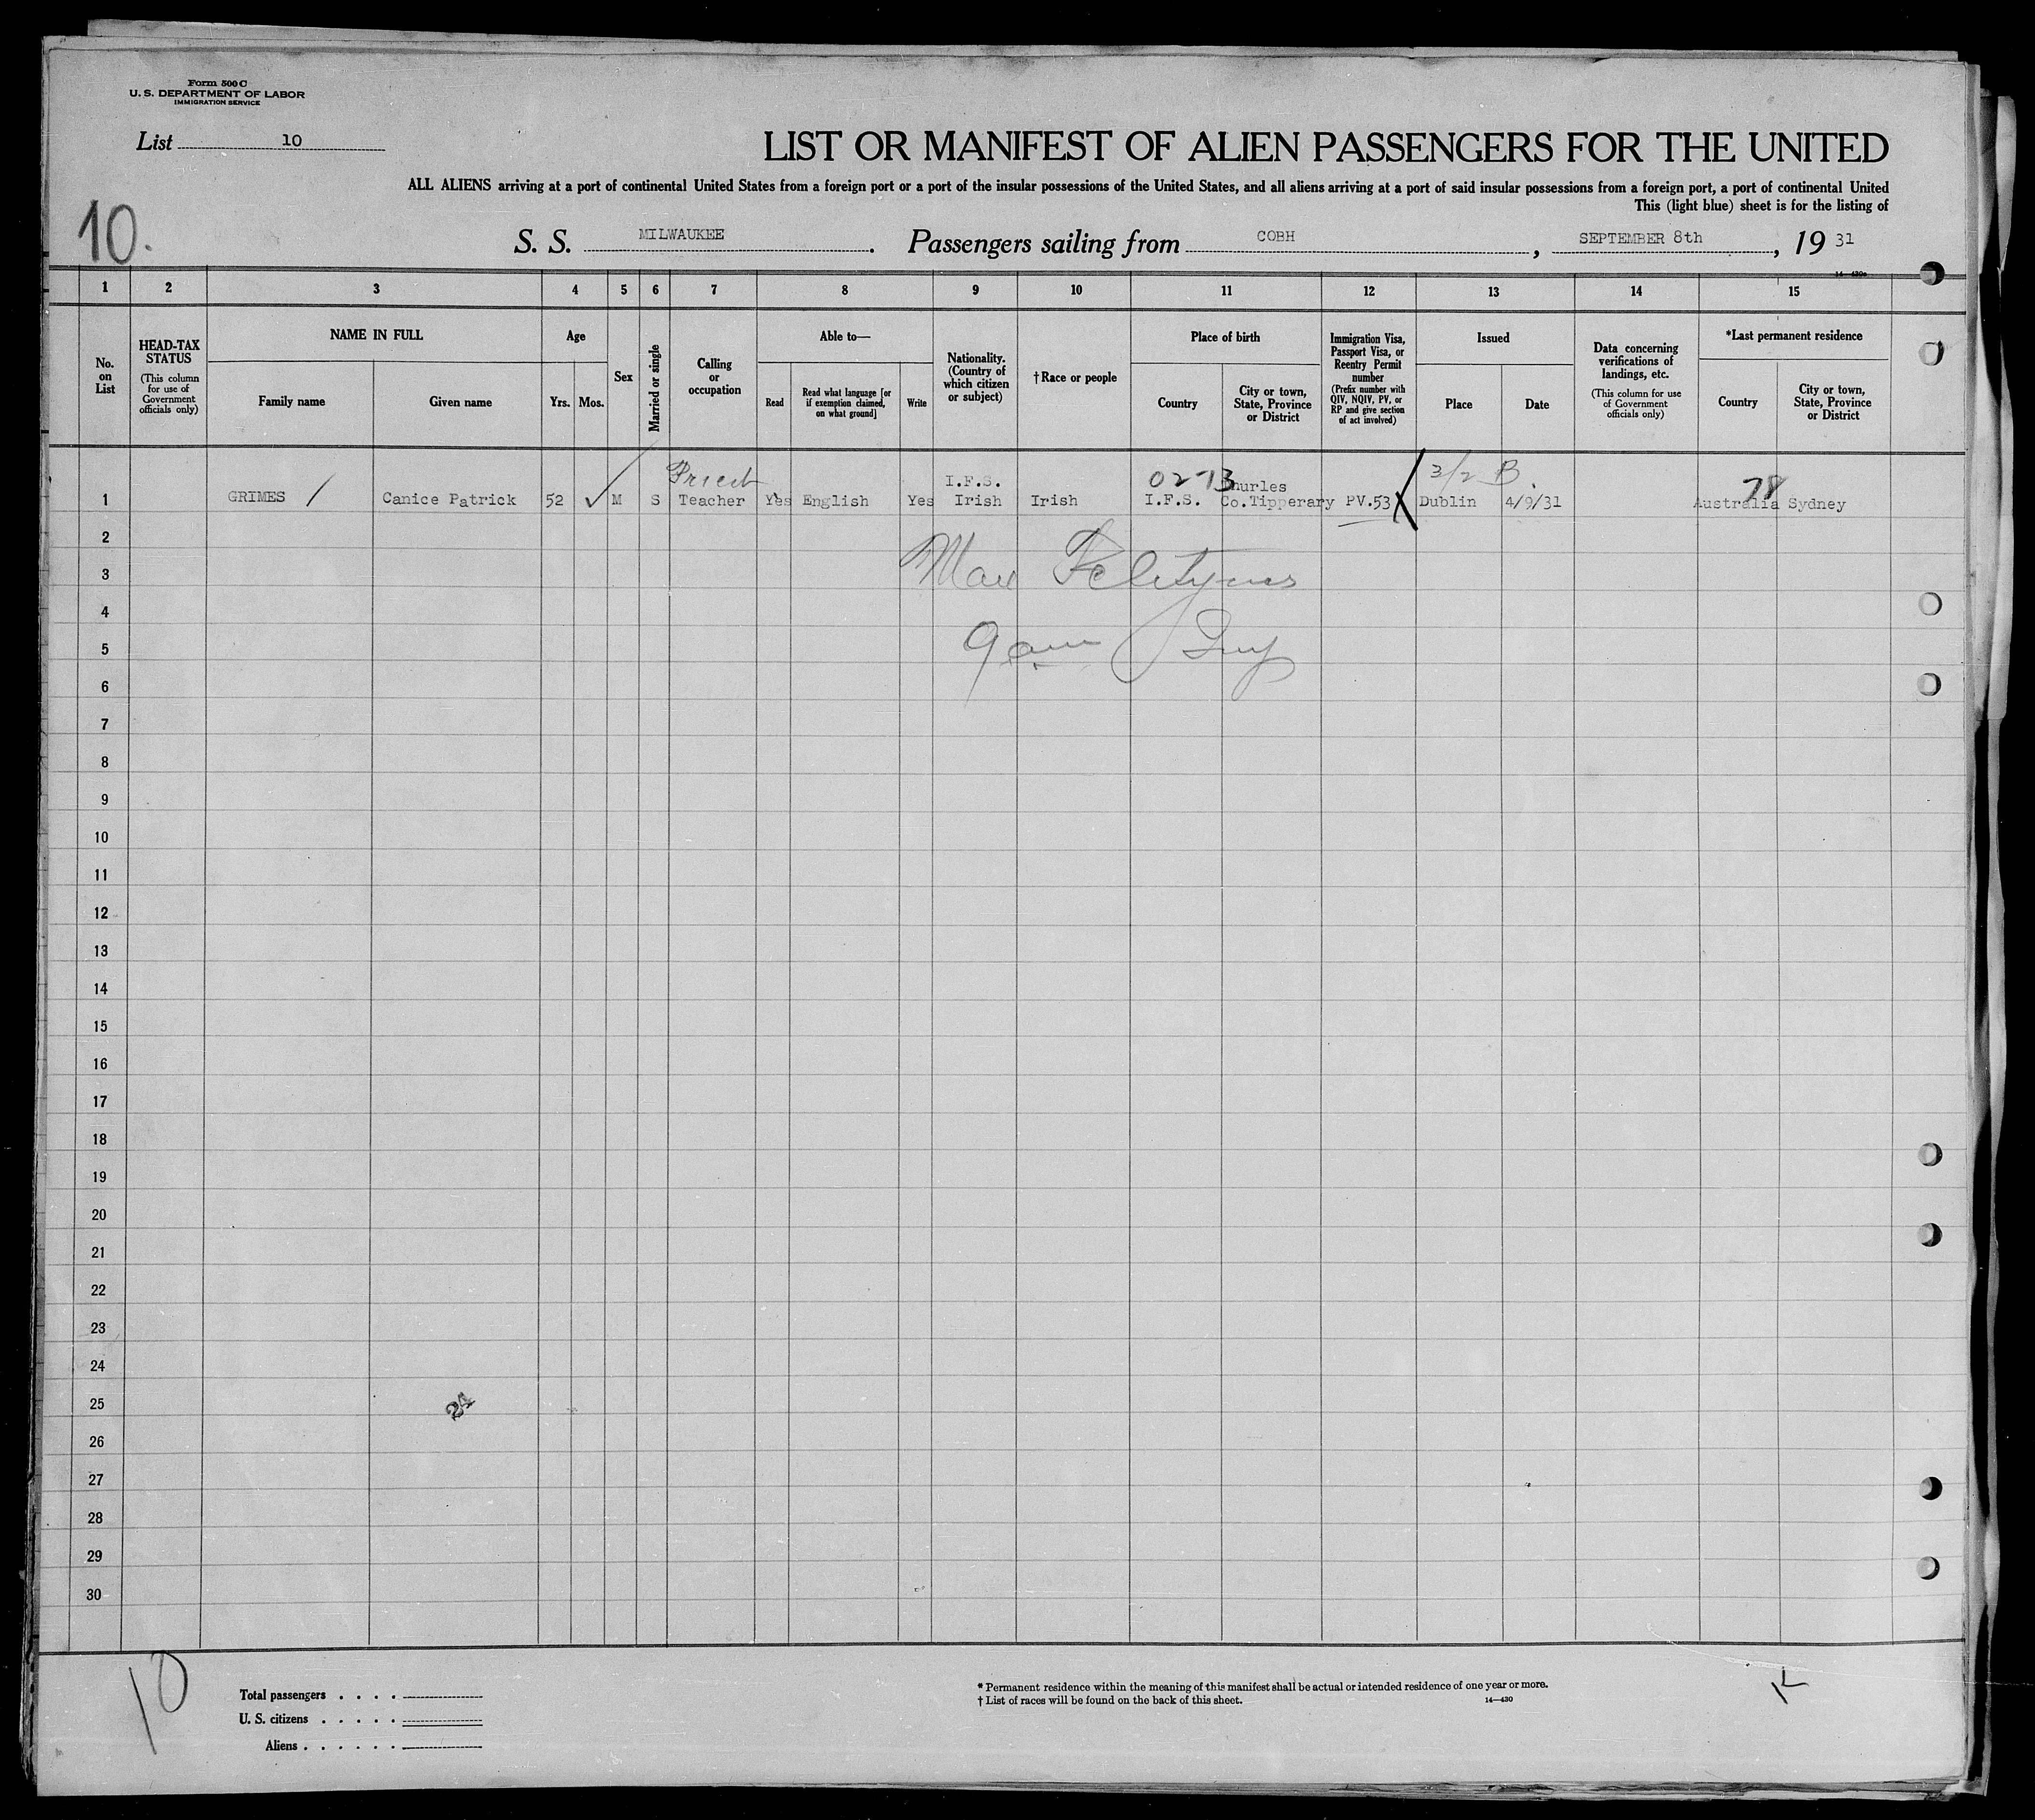 Form 500 C
U. S. DEPARTMENT OF LABOR
IMMIGRATION SERVICE
List 10
LIST OR MANIFEST OF ALIEN PASSENGERS FOR THE UNITED
ALL ALIENS arriving at a port of continental United States from a foreign port or a port of the insular possessions of the United States, and all aliens arriving at a port of said insular possessions from a foreign port, a port of continental United
This (light blue) sheet is for the listing of
10.
S. S. MILWAUKEE. Passengers sailing from COBH, SEPTEMBER 8th, 19 31
14—430a
1 2 3 4 5 6 7 8 9 10 11 12 13 14 15
No. on List
HEAD-TAX STATUS
(This column for use of Government officials only)
NAME IN FULL
Family name
Given name
Age
Yrs. Mos.
Sex
Married or single
Calling or occupation
Able to—
Read
Read what language [or if exemption claimed, on what ground]
Write
Nationality. (Country of which citizen or subject)
†Race or people
Place of birth
Country
City or town, State, Province or District
Immigration Visa, Passport Visa, or Reentry Permit number
(Prefix number with QIV, NQIV, PV, or RP and give section of act involved)
Issued
Place
Date
Data concerning verifications of landings, etc.
(This column for use of Government officials only)
*Last permanent residence
Country
City or town, State, Province or District
Priest I.F.S. 02-13 Thurles 3/2 B. 78
1 GRIMES / Canice Patrick 52 ✓ M S Teacher Yes English Yes Irish Irish I.F.S. Co.Tipperary PV.53 Dublin 4/9/31 Australia Sydney
2
3
4
5
9am
6
7
8
9
10
11
12
13
14
15
16
17
18
19
20
21
22
23
24
25
24
26
27
28
29
30
10
Total passengers . . . .
U. S. citizens . . . . .
Aliens . . . . . .
* Permanent residence within the meaning of this manifest shall be actual or intended residence of one year or more.
† List of races will be found on the back of this sheet.
14—430